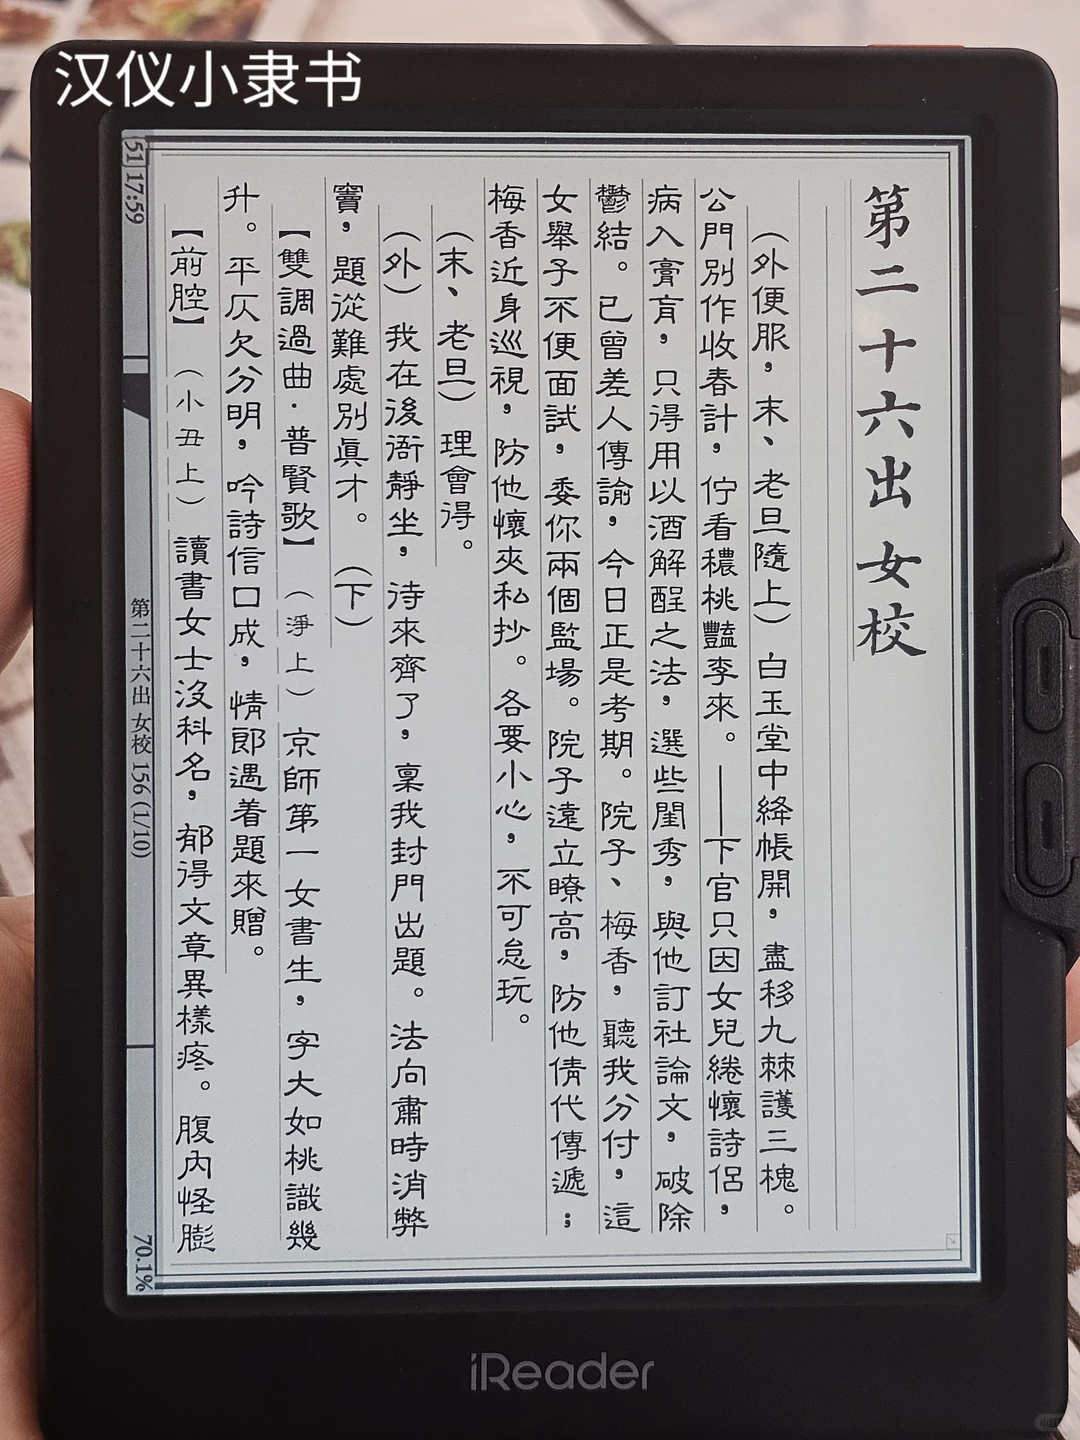 汉仪小隶书
第二十六出 女校
（外便服，末、老旦隨上）白玉堂中絳帳開，盡移九棘護三槐。
公門別作收春計，佇看穠桃豔李來。——下官只因女兒綣懷詩侶，
病入膏肓，只得用以酒解酲之法，選些閨秀，與他訂社論文，破除
鬱結。已曾差人傳諭，今日正是考期。院子、梅香，聽我分付，這
女舉子不便面試，委你兩個監場。院子遠立瞭高，防他倩代傳遞；
梅香近身巡視，防他懷夾私抄。各要小心，不可怠玩。
（末、老旦）理會得。
（外）我在後衙靜坐，待來齊了，稟我封門出題。法向肅時消弊
竇，題從難處別眞才。（下）
【雙調過曲·普賢歌】（淨上）京師第一女書生，字大如桃識幾
升。平仄欠分明，吟詩信口成，情郎遇着題來贈。
【前腔】（小丑上）讀書女士沒科名，郁得文章異樣疼。腹內怪膨
51 17:59
第二十六出 女校 156 (1/10)
70.1%
iReader